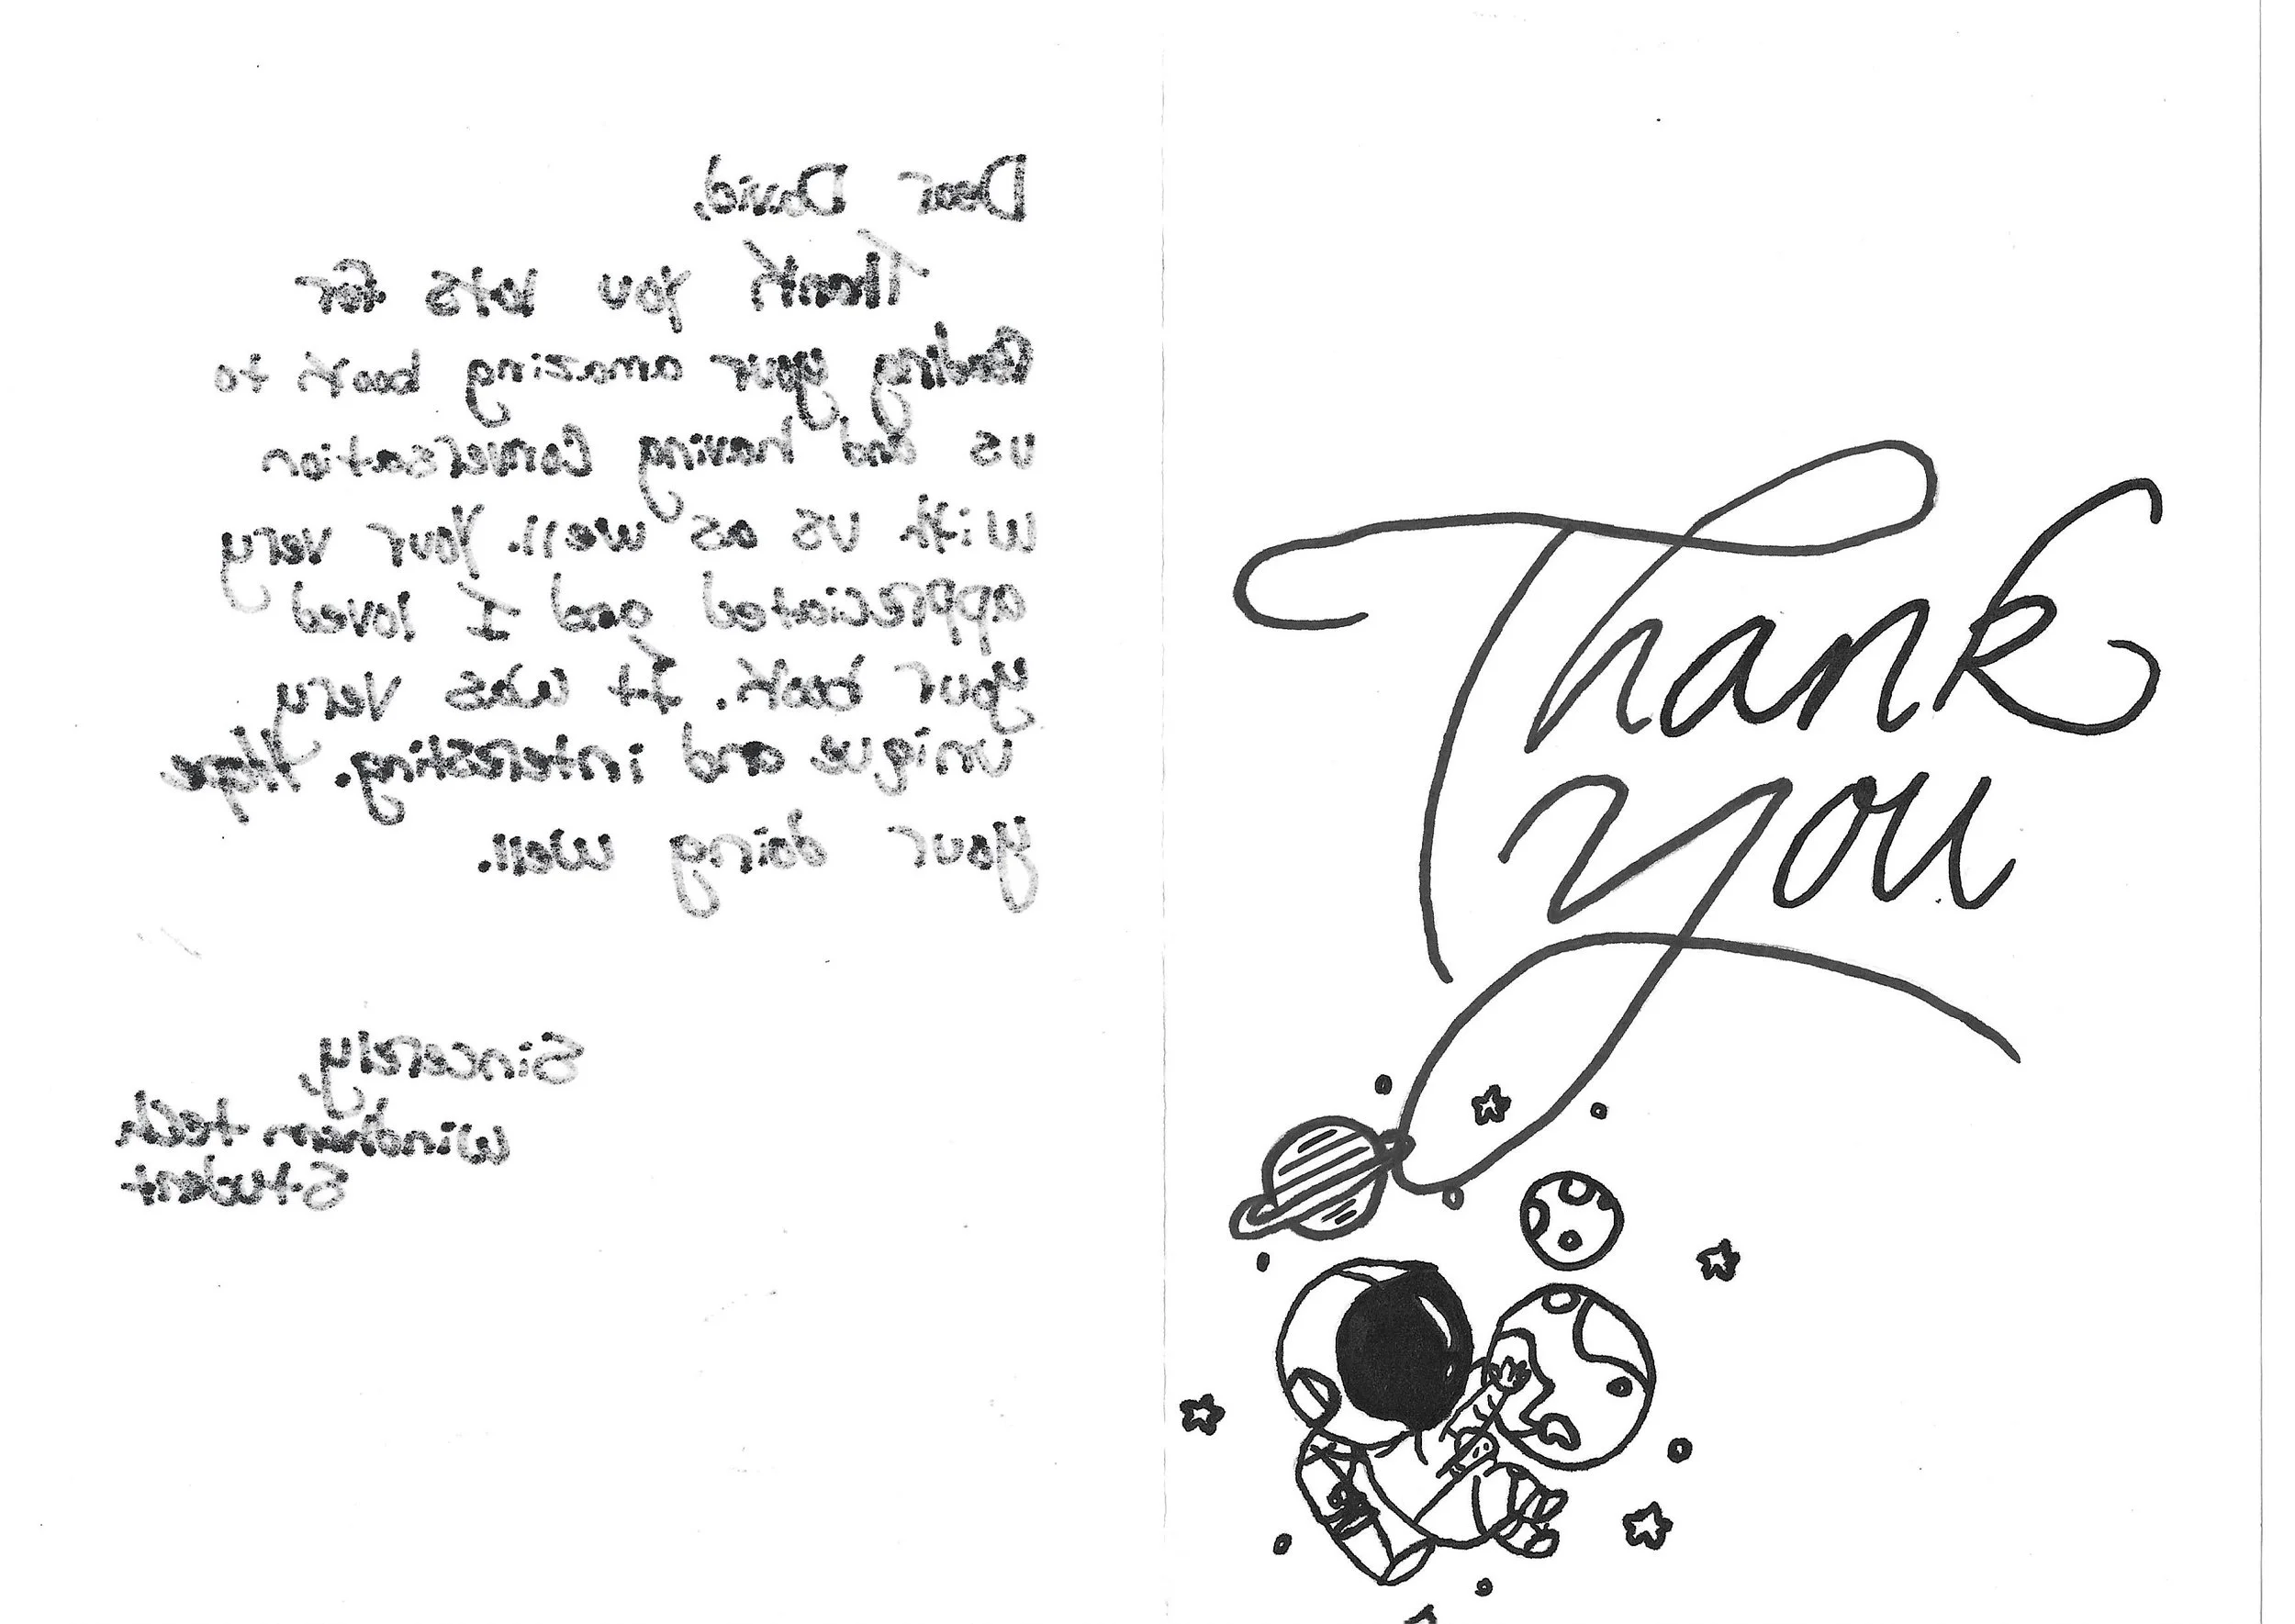 Dear David,
Thank you lots for
your amazing book to
us and having conversation
with us as well. Your very
appreciated and I loved
your book. It was very
unique and interesting. Hope
your doing well.
Sincerely,
tech
Student
Thank
you